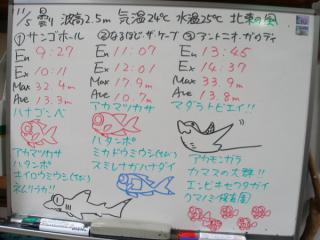 11/5 曇り 波高2.5m 気温24℃ 水温25℃ 北東の風
①サンゴホール ②なるほど・ザ・ケーブ ③アントニオ・ガウディ
En 9:27 En 11:07 En 13:45
Ex 10:11 Ex 12:01 Ex 14:37
Max 32.4m Max 17.9m Max 33.9m
Ave 13.3m Ave 10.7m Ave 13.8m
ハナゴンベ アカマツカサ マダラトビエイ!!
アカマツカサ ハタンポ アカモンガラ
ハタンポ ミカドウミウシ カママスの大群!!
キイロウミウシ スミレナガハナダイ エンビキセワタガイ
ネムリブカ!! クマノミ保育園